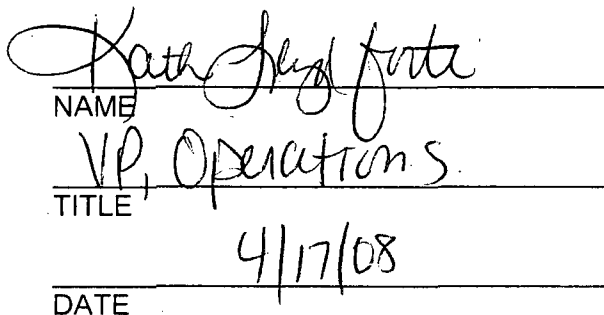 Kath
NAME
VP, Operations
TITLE
4/17/08
DATE